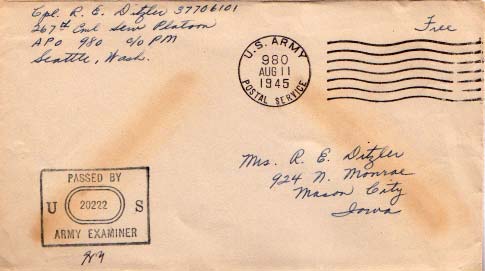 Cpl. R. E. Ditzler 37706101
267th Cml Serv Platoon
APO 980 c/o PM
Seattle, Wash.
Free
U.S. ARMY
980
AUG 11
1945
POSTAL SERVICE
Mrs. R. E. Ditzler
924 N. Monroe
Mason City
Iowa
PASSED BY
U 20222 S
ARMY EXAMINER